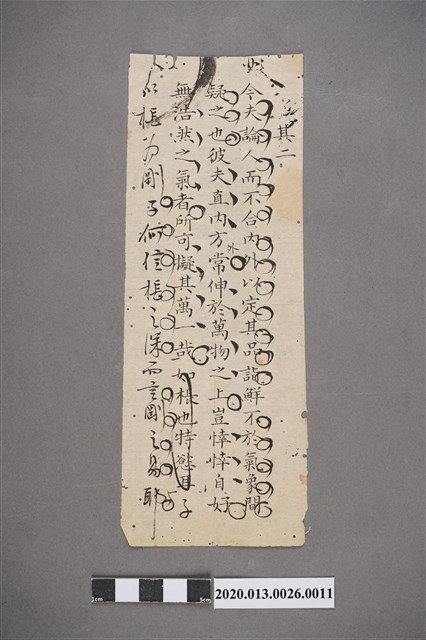 其二
今夫論人而不合內外以定其品詣鮮不於氣象間
疑之也彼夫直內方外常伸於萬物之上豈悻悻自好
無浩然之氣者所可擬其萬一哉如棖也特慾耳子
以棖为剛子何信棖之深而言剛之易耶
1cm
5cm
2020.013.0026.0011